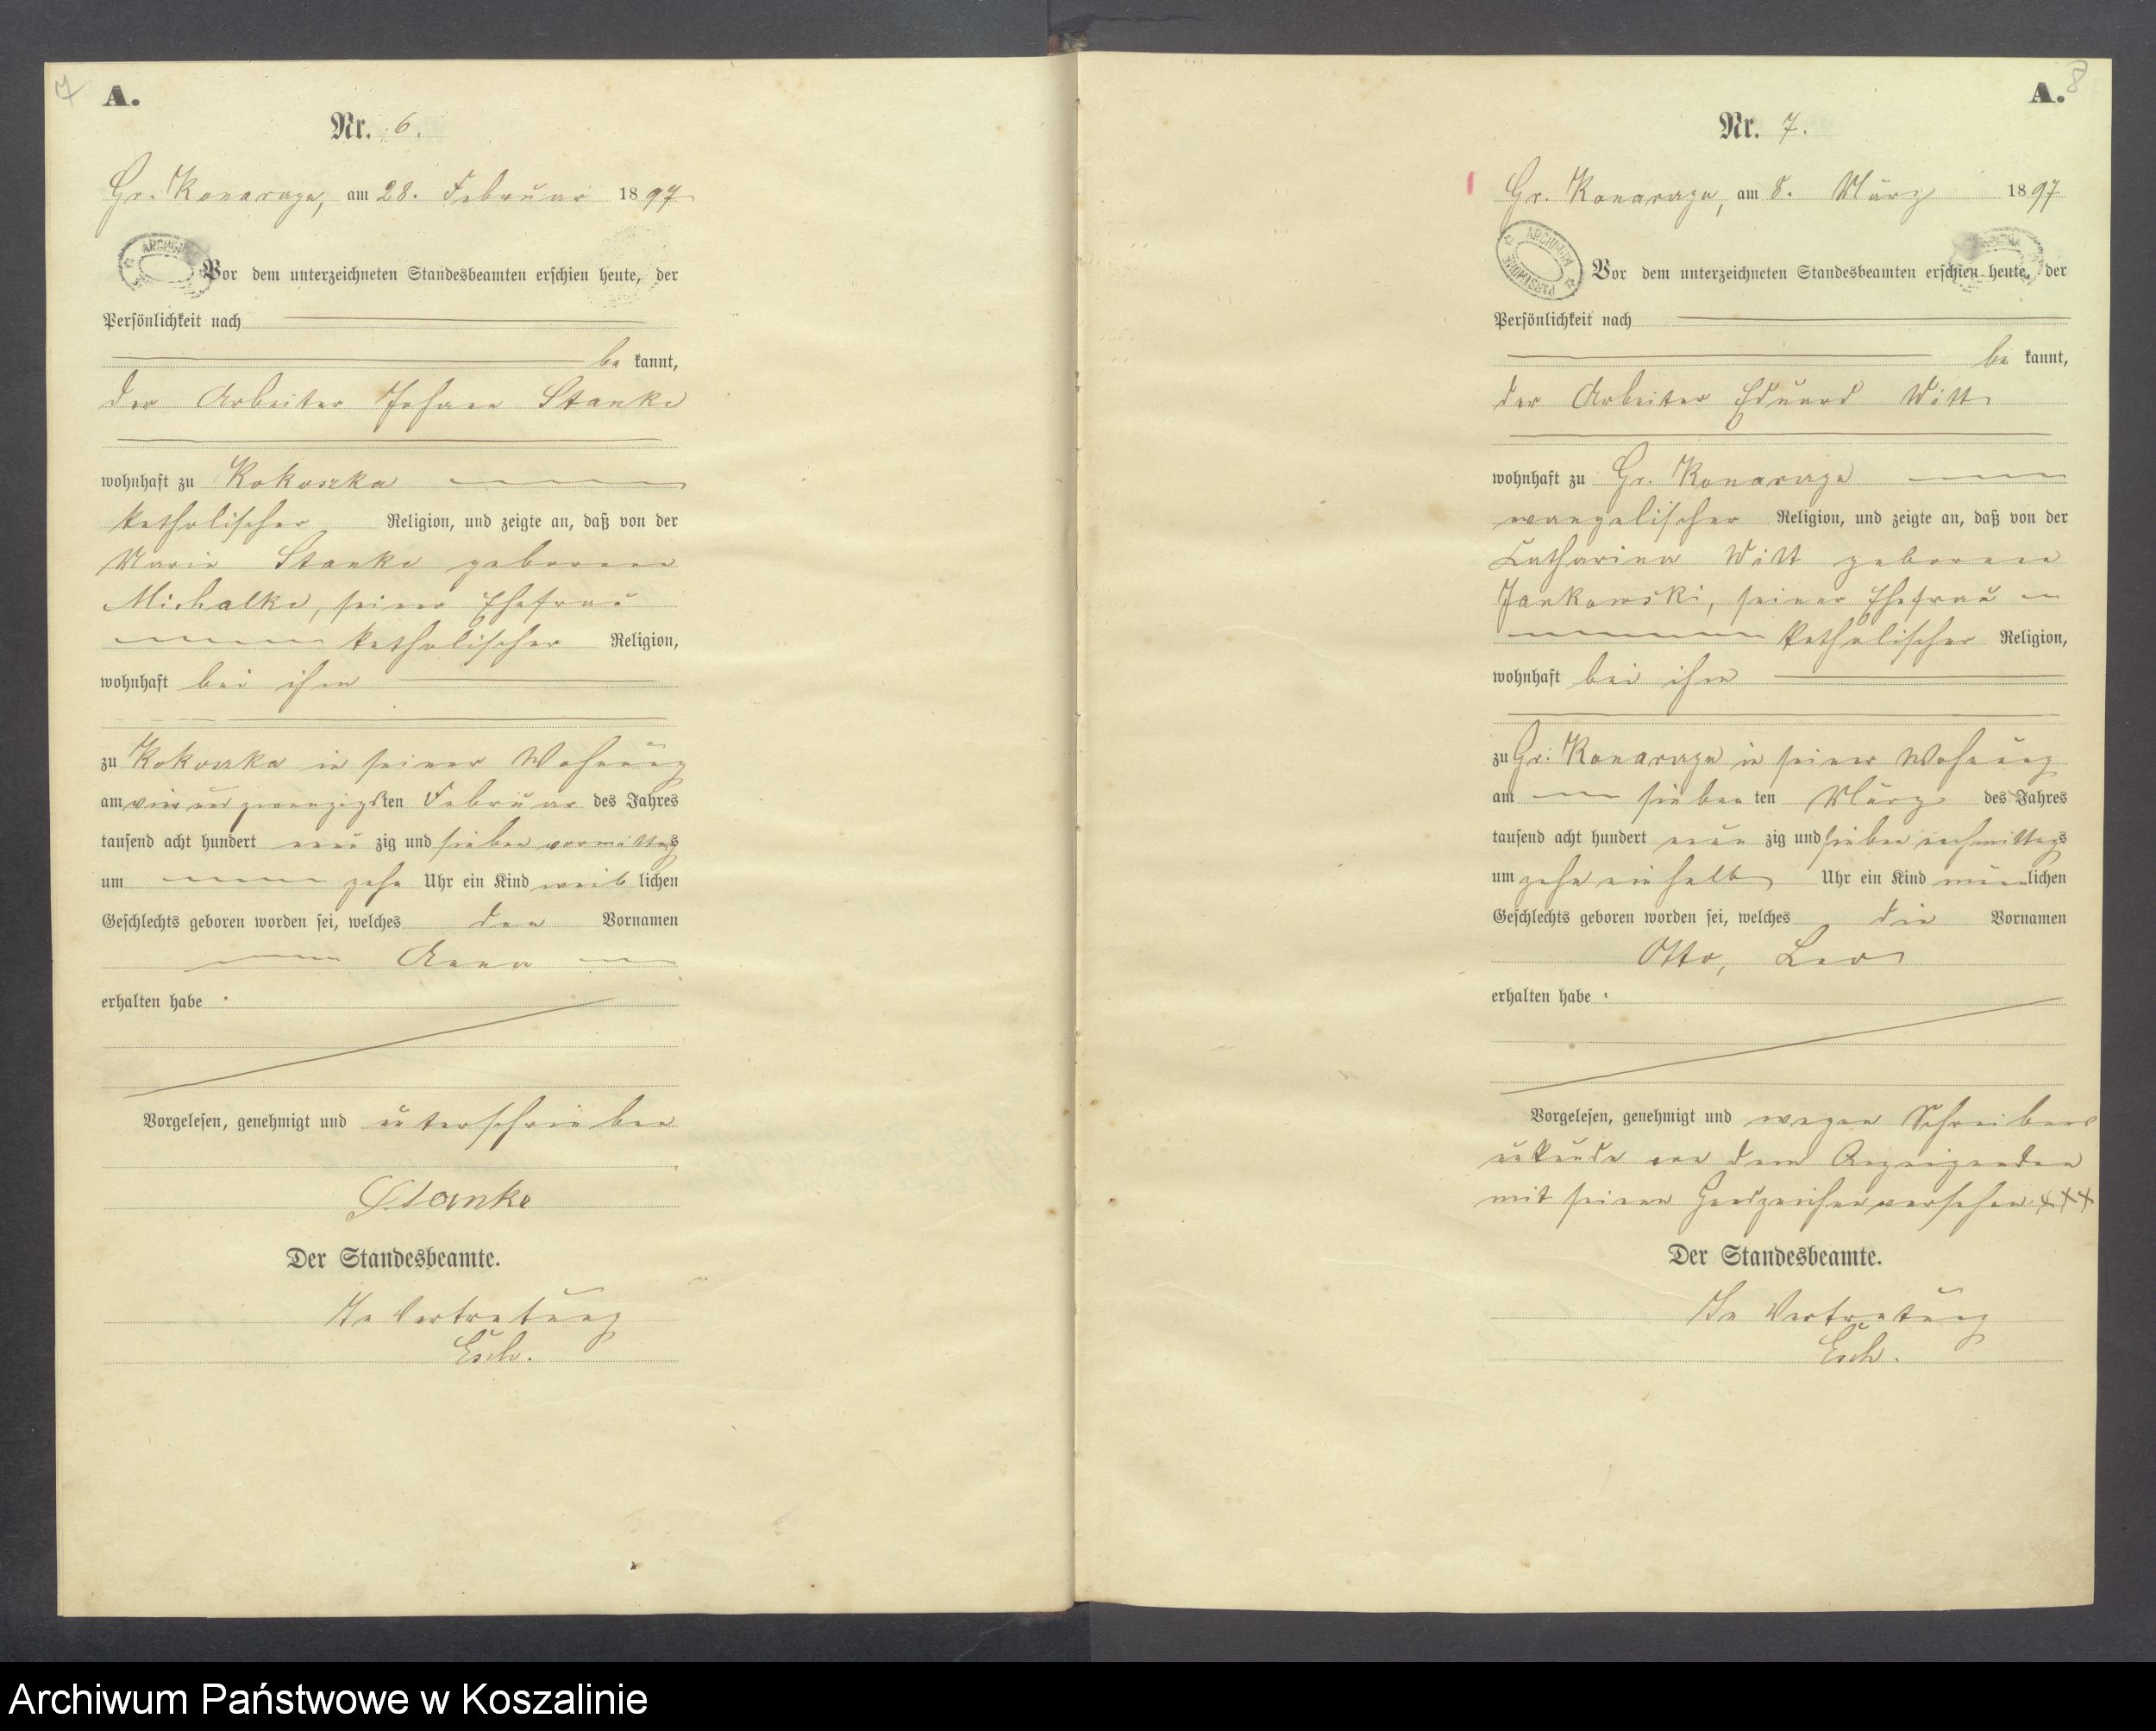 7
A.
Nr. 6.
Gr. Konarczyn, am 28. Februar 1897
ARCHIWUM
Vor dem unterzeichneten Standesbeamten erschien heute, der
Persönlichkeit nach
be kannt,
der Arbeiter Johann Stanke
wohnhaft zu Kokoszka
katholischer Religion, und zeigte an, daß von der
Marie Stanke geborenen
Michalke, seiner Ehefrau
katholischer Religion,
wohnhaft bei ihm
zu Kokoszka in seiner Wohnung
am vier und zwanzigsten Februar des Jahres
tausend acht hundert neun zig und sieben vormittags
um zehn Uhr ein Kind weib lichen
Geschlechts geboren worden sei, welches den Vornamen
Anna
erhalten habe.
Vorgelesen, genehmigt und unterschrieben
Stanke
Der Standesbeamte.
In Vertretung
Esch.
8
A.
Nr. 7.
Gr. Konarczyn, am 8. März 1897
ARCHIWUM PAŃSTWOWE
Vor dem unterzeichneten Standesbeamten erschien heute, der
Persönlichkeit nach
be kannt,
der Arbeiter Eduard Witt
wohnhaft zu Gr. Konarczyn
evangelischer Religion, und zeigte an, daß von der
Catharina Witt geborenen
Jankowski, seiner Ehefrau
katholischer Religion,
wohnhaft bei ihm
zu Gr. Konarczyn in seiner Wohnung
am sieben ten März des Jahres
tausend acht hundert neun zig und sieben nachmittags
um zehn einhalb Uhr ein Kind männlichen
Geschlechts geboren worden sei, welches die Vornamen
Otto, Leo
erhalten habe.
Vorgelesen, genehmigt und wegen Schreibens
unkunde von dem Anzeigenden
mit seinem Handzeichen versehen. +++
Der Standesbeamte.
In Vertretung
Esch.
Archiwum Państwowe w Koszalinie